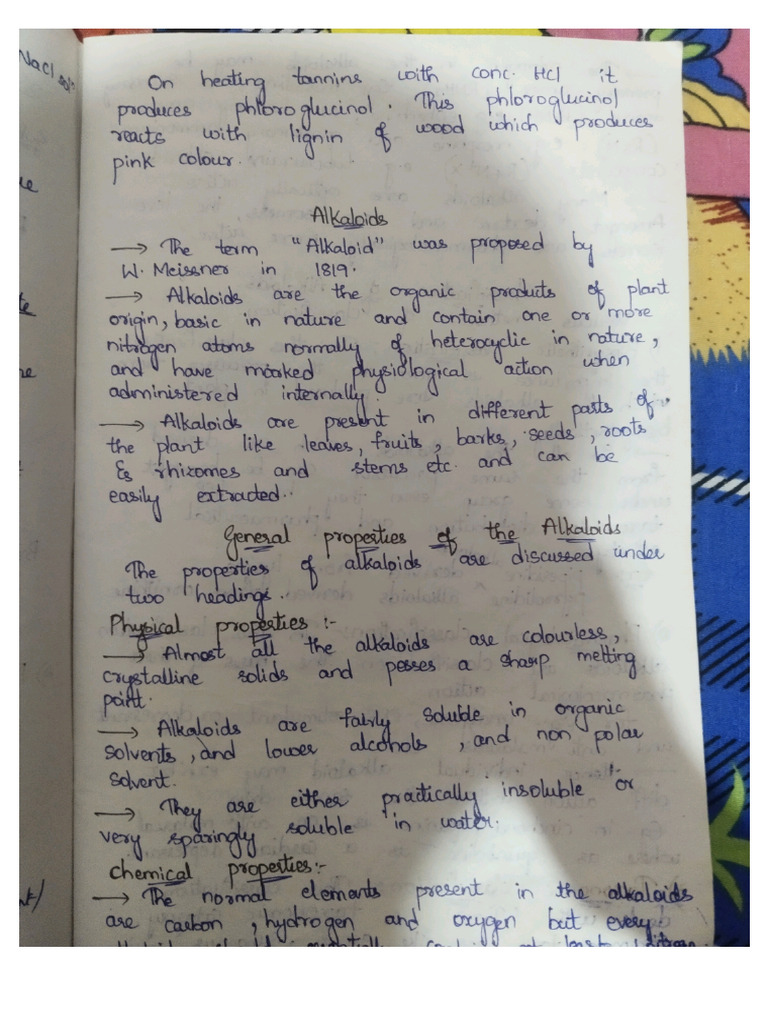 NaCl soln
On heating tannins with conc. HCl it
produces phloroglucinol. This phloroglucinol
reacts with lignin of wood which produces
pink colour.
Alkaloids
→ The term "Alkaloid" was proposed by
W. Meissner in 1819.
→ Alkaloids are the organic products of plant
origin, basic in nature and contain one or more
nitrogen atoms normally of heterocyclic in nature,
and have marked physiological action when
administered internally.
→ Alkaloids are present in different parts of
the plant like leaves, fruits, barks, seeds, roots
& rhizomes and stems etc. and can be
easily extracted.
General properties of the Alkaloids
The properties of alkaloids are discussed under
two headings.
Physical properties :-
→ Almost all the alkaloids are colourless,
crystalline solids and posses a sharp melting
point.
→ Alkaloids are fairly soluble in organic
solvents, and lower alcohols, and non polar
solvent.
→ They are either practically insoluble or
very sparingly soluble in water.
chemical properties:-
→ The normal elements present in the alkaloids
are carbon, hydrogen and oxygen but every